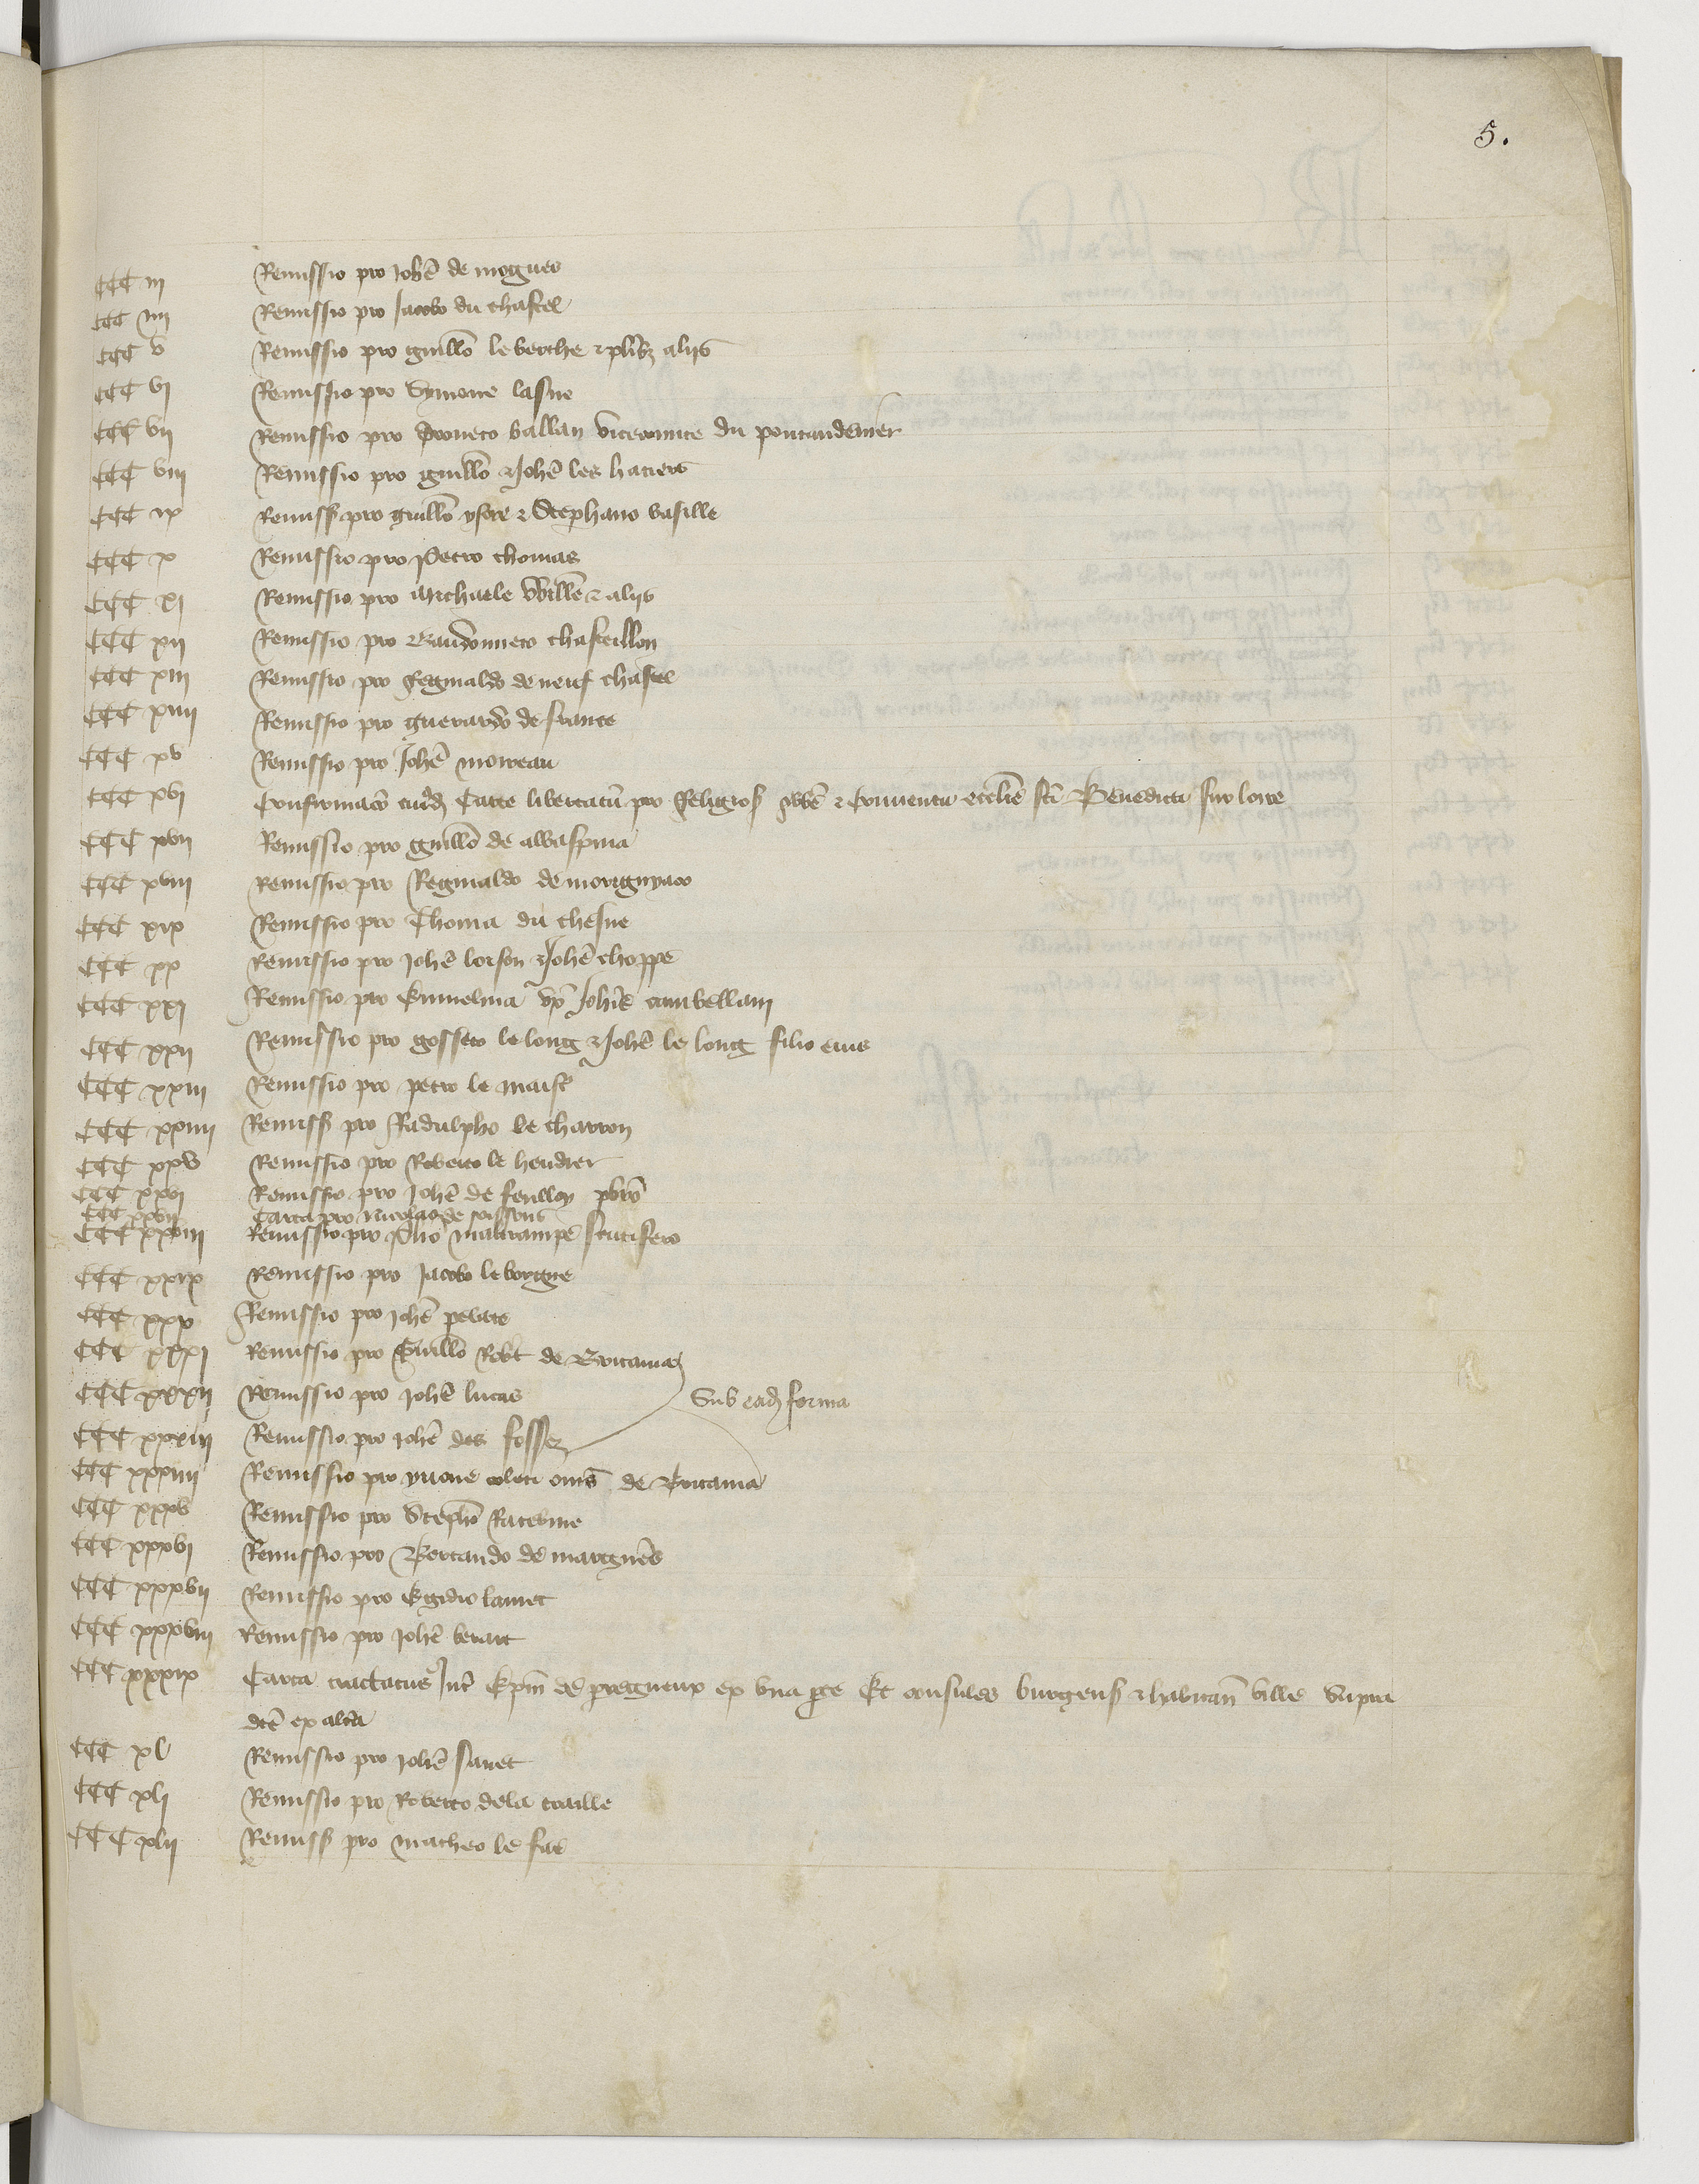 5.
CCC III Remissio pro Johē de mogues
CCC IIII Remissio pro Jacobo du chastel
CCC V Remissio pro guillō le berche & plibȝ aliis
CCC VI Remissio pro Symone lasne
CCC VII Remissio pro Droueto ballan vicecomite du pontaudemer
CCC VIII Remissio pro guillō & Johē les hatiers
CCC IX Remiss pro guillō ysore & Stephano basille
CCC X Remissio pro Petro thomas
CCC XI Remissio pro Michaele & aliis
CCC XII Remissio pro Baudonneto chasteillon
CCC XIII Remissio pro Reginaldo de neuf chastel
CCC XIIII Remissio pro guerardo de france
CCC XV Remissio pro Johē moreau
CCC XVI Confirmacō Carte libertatū pro Religios & Conventu ecclie sci Benedicti sur loire
CCC XVII Remissio pro guillō de albaspina
CCC XVIII Remissio pro Reginaldo de morignyaco
CCC XIX Remissio pro Thoma du chesne
CCC XX Remissio pro Johē lorson & Johē choppe
CCC XXI Remissio pro Emmelina vxͥ Johis cambellan
CCC XXII Remissio pro gosseto le long & Johē le long filio eius
CCC XXIII Remissio pro petro le maist
CCC XXIIII Remiss pro Radulpho le charron
CCC XXV Remissio pro Roberto le hendier
CCC XXVI Remissio pro Johē de feulloy pbro
CCC XXVII Carta pro Nicolao de soissons
CCC XXVIII Remissio pro Pho malrampe scutifero
CCC XXIX Remissio pro Jacobo le borgne
CCC XXX Remissio pro Johē
CCC XXXI Remissio pro Guillō Robt de Britania
CCC XXXII Remissio pro Johē lucas Sub eadȝ forma
CCC XXXIII Remissio pro Johē des fossez
CCC XXXIIII Remissio pro yuone coleti oms de Britania
CCC XXXV Remissio pro Stepho Ratevine
CCC XXXVI Remissio pro Bertando de martgnes
CCC XXXVII Remissio pro Egidio lamet
CCC XXXVIII Remissio pro Johē berart
CCC XXXIX Carta tractatus Int Epm de peregueux ex vna pte Et consules burgens & habitan ville supra
dce ex altera
CCC XL Remissio pro Johē sanet
CCC XLI Remissio pro Roberto dela traille
CCC XLII Remiss pro matheo le fae